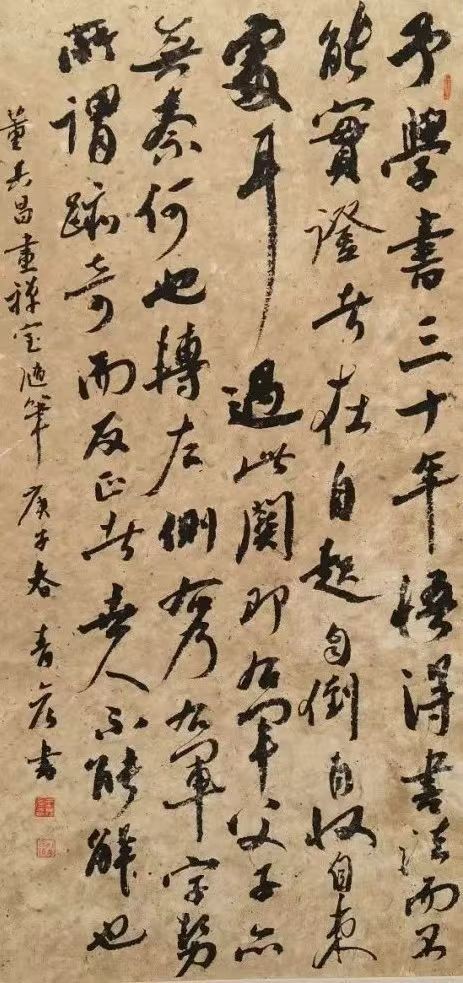 予學書三十年悟得書法而不
能實證者在自起自倒自收自束
處耳過此關即右軍父子亦
無奈何也轉左側右乃右軍字勢
所謂跡奇而反正者世人不能解也
董其昌畫禪室随筆 庚子春 青書